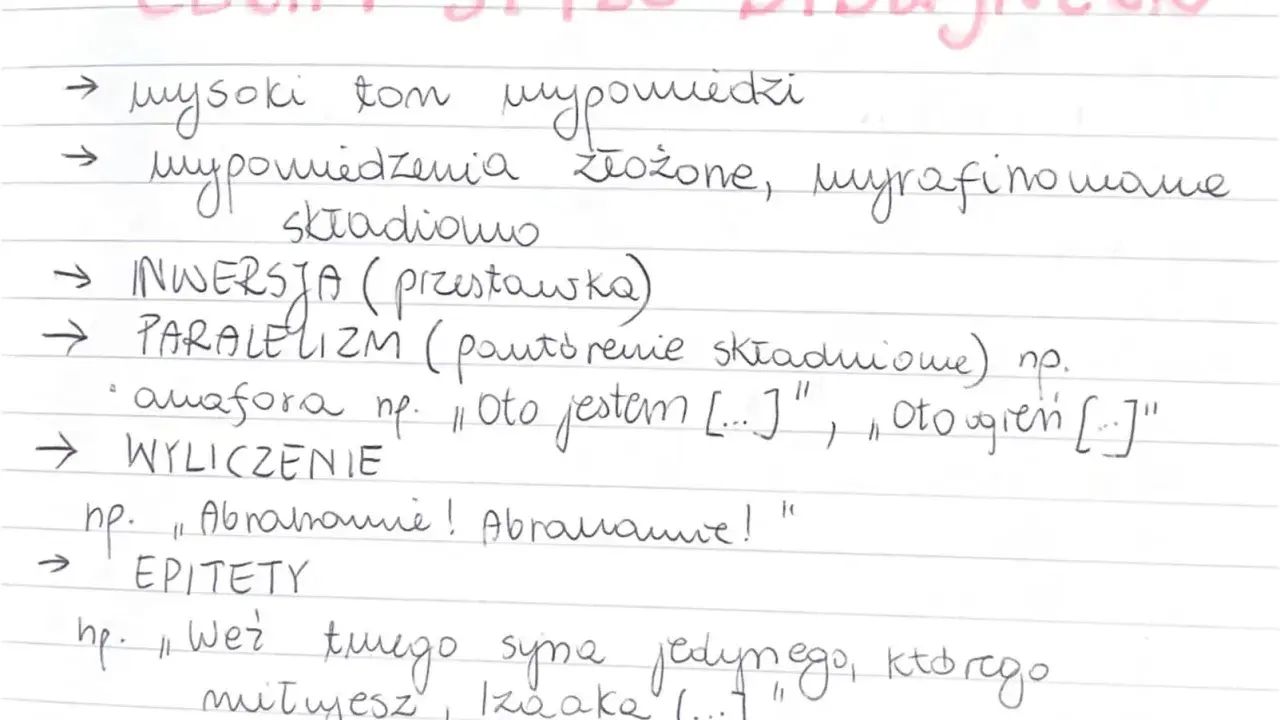 → wysoki ton wypowiedzi
→ wypowiedzenia złożone, wyrafinowane
składniowo
→ INWERSJA (przestawka)
→ PARALELIZM (powtórenie składniowe) np.
· anafora np. „Oto jestem [...]", „Oto ogień [...]"
→ WYLICZENIE
np. „Abrahamie! Abrahamie!"
→ EPITETY
np. „Weź twego syna jedynego, którego
miłujesz, Izaaka (...]"